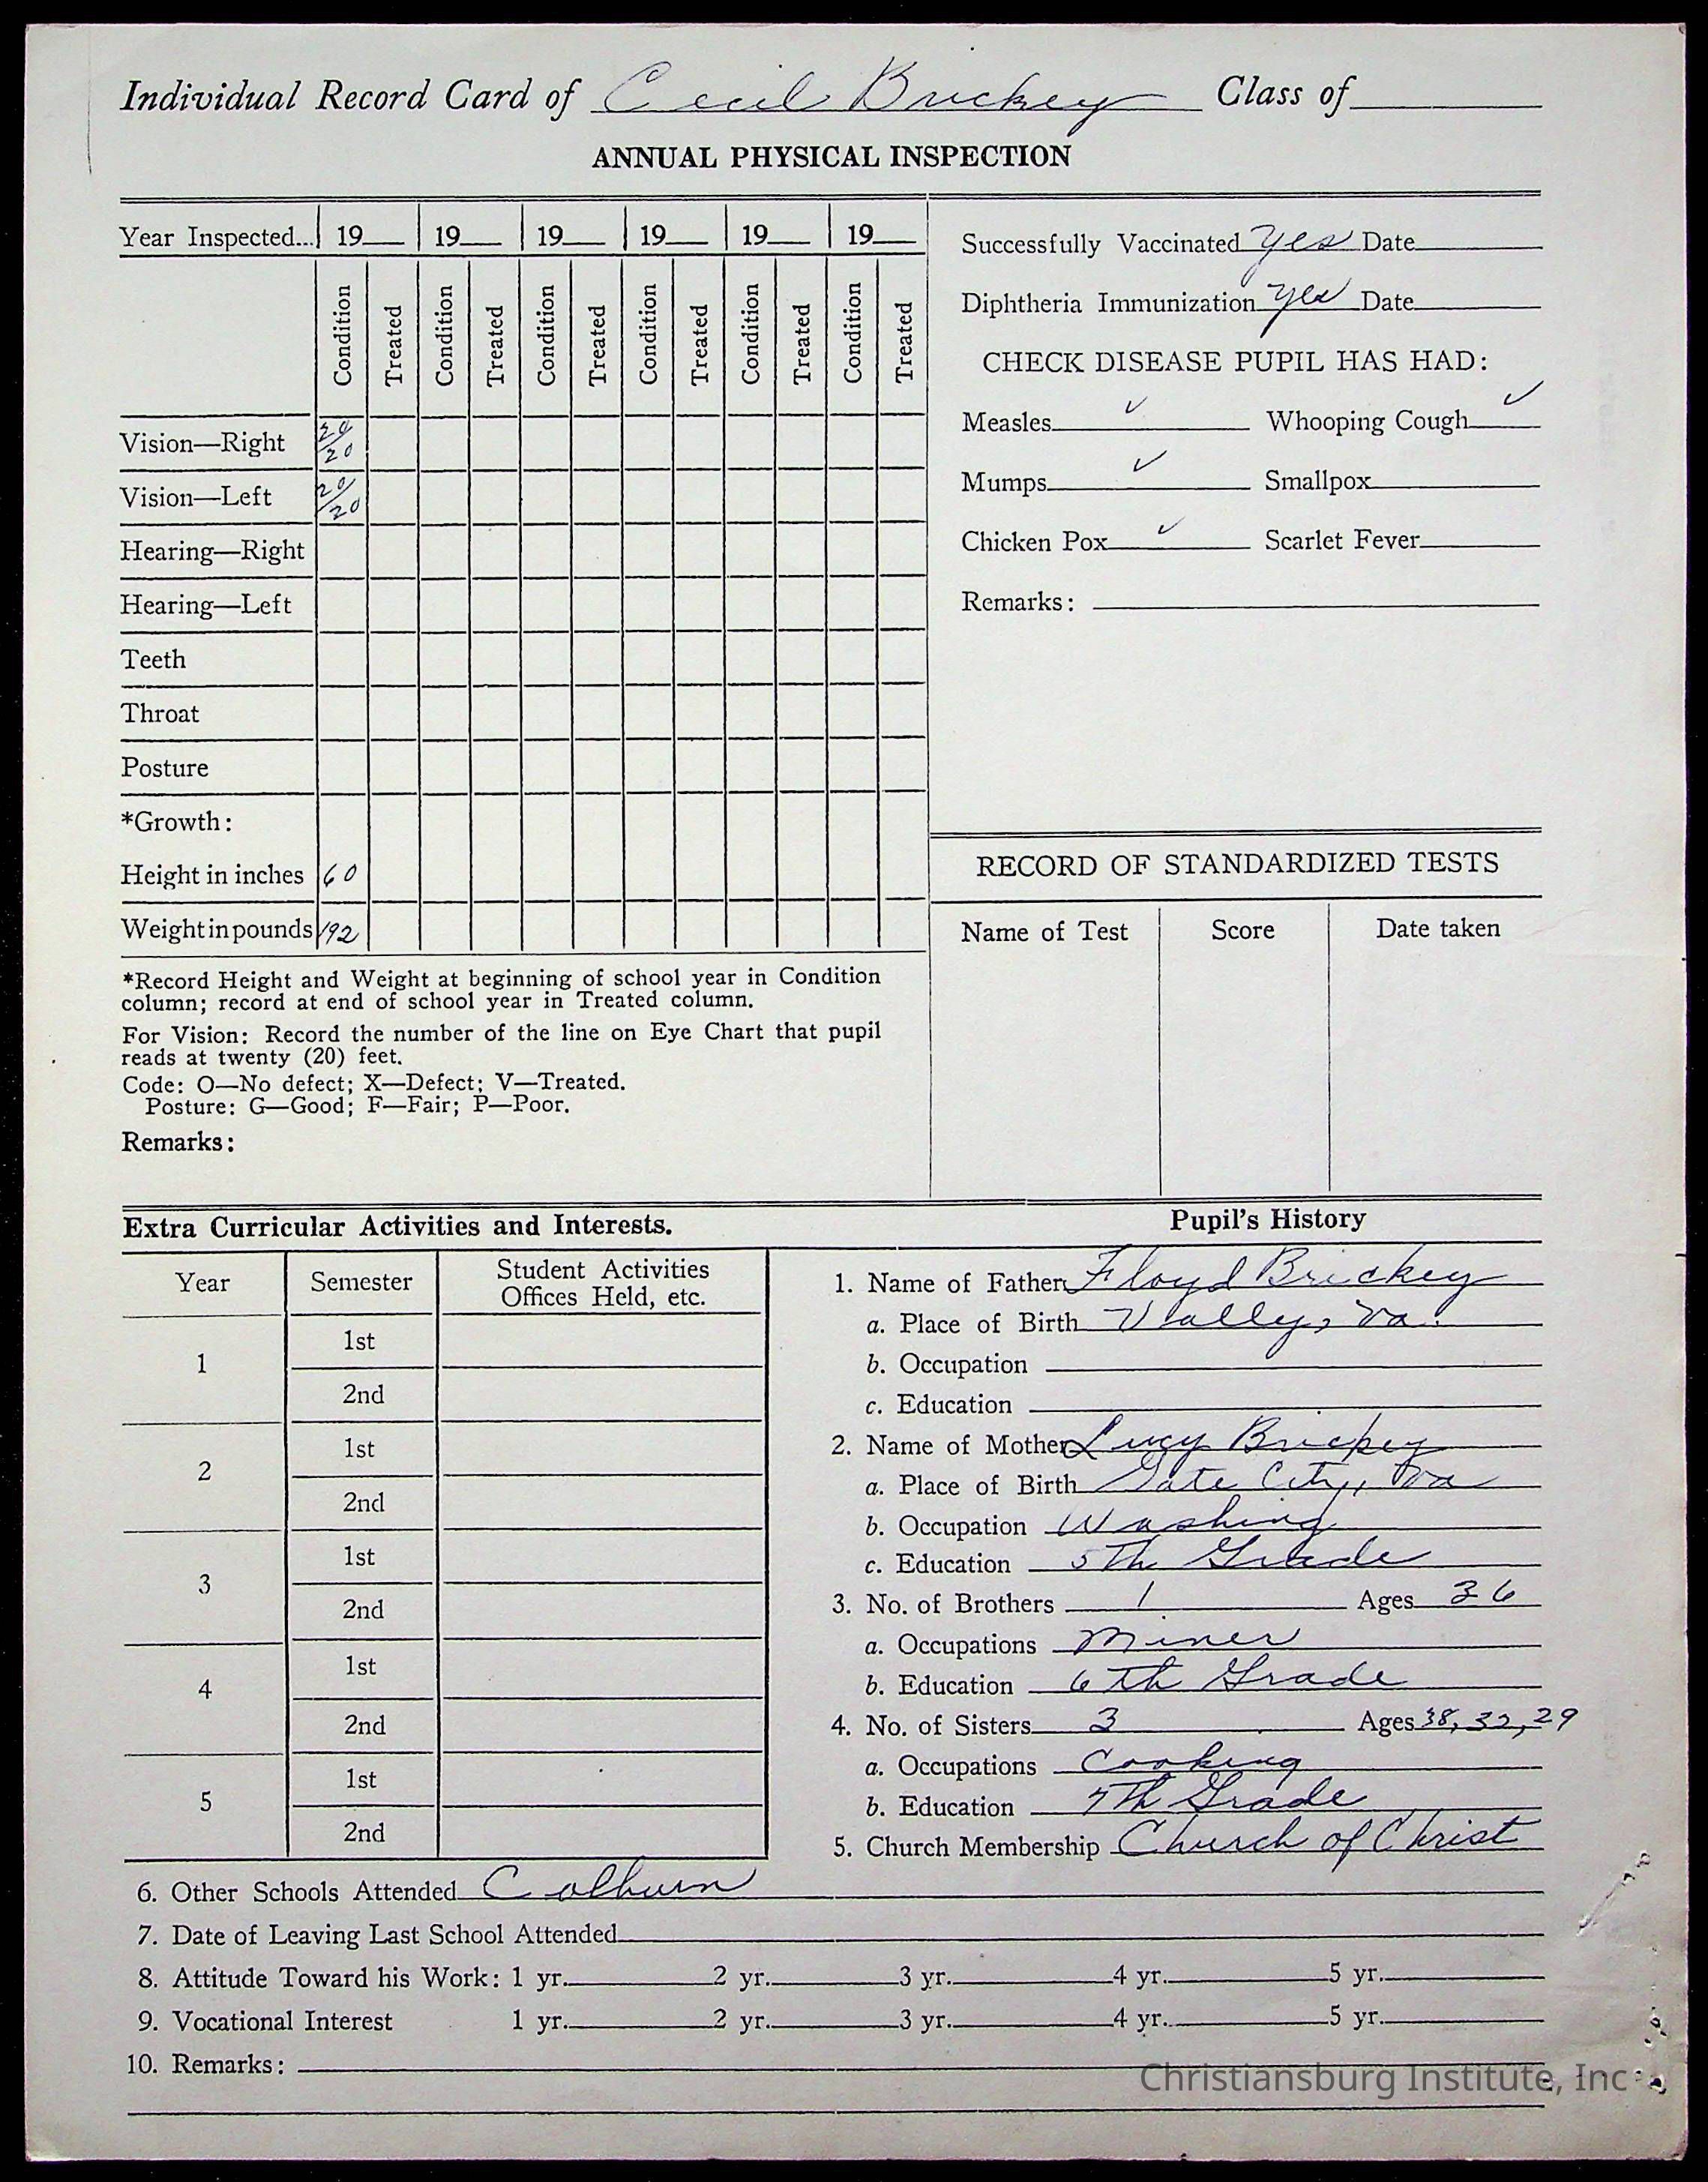 Individual Record Card of Cecil Brickey Class of
ANNUAL PHYSICAL INSPECTION
Year Inspected... 19 19 19 19 19 19
Condition Treated Condition Treated Condition Treated Condition Treated Condition Treated Condition Treated
Vision—Right 20/20
Vision—Left 20/20
Hearing—Right
Hearing—Left
Teeth
Throat
Posture
*Growth:
Height in inches 60
Weight in pounds 192
*Record Height and Weight at beginning of school year in Condition
column; record at end of school year in Treated column.
For Vision: Record the number of the line on Eye Chart that pupil
reads at twenty (20) feet.
Code: O—No defect; X—Defect; V—Treated.
Posture: G—Good; F—Fair; P—Poor.
Remarks:
Successfully Vaccinated yes Date
Diphtheria Immunization yes Date
CHECK DISEASE PUPIL HAS HAD:
Measles ✓ Whooping Cough ✓
Mumps ✓ Smallpox
Chicken Pox ✓ Scarlet Fever
Remarks:
RECORD OF STANDARDIZED TESTS
Name of Test Score Date taken
Extra Curricular Activities and Interests.
Year Semester Student Activities
Offices Held, etc.
1 1st
2nd
2 1st
2nd
3 1st
2nd
4 1st
2nd
5 1st
2nd
Pupil's History
1. Name of Father Floyd Brickey
a. Place of Birth Va.
b. Occupation
c. Education
2. Name of Mother Lucy Brickey
a. Place of Birth Gate City, Va
b. Occupation Washing
c. Education 5th Grade
3. No. of Brothers 1 Ages 36
a. Occupations Miner
b. Education 6th Grade
4. No. of Sisters 3 Ages 38, 32, 29
a. Occupations Cooking
b. Education 7th Grade
5. Church Membership Church of Christ
6. Other Schools Attended Calhurn
7. Date of Leaving Last School Attended
8. Attitude Toward his Work: 1 yr. 2 yr. 3 yr. 4 yr. 5 yr.
9. Vocational Interest 1 yr. 2 yr. 3 yr. 4 yr. 5 yr.
10. Remarks:
Christiansburg Institute, Inc